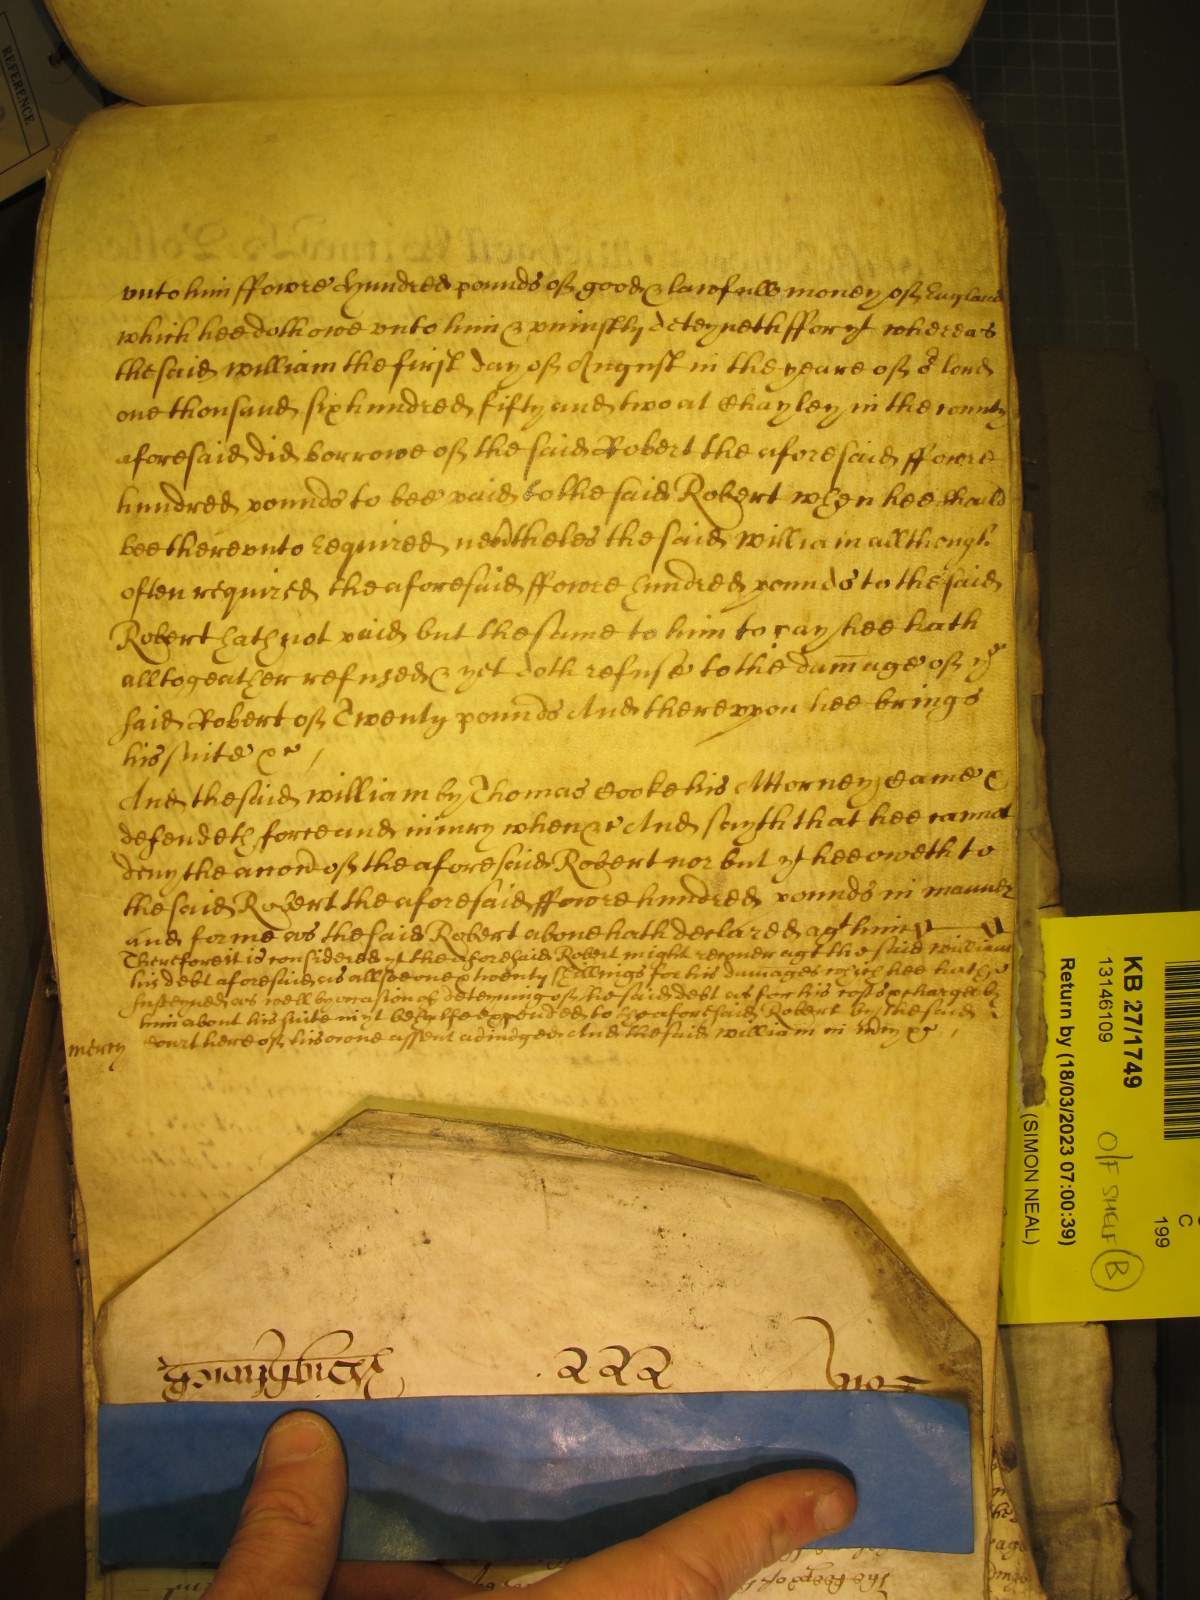 REFERENCE
vnto him ffowre hundred pounds of good & lawfull money of England
which hee doth owe vnto him & vniustly deteyneth ffor yt whereas
the said William the first day of August in the yeare of or lord
one thousand six hundred fifty and two at Chayley in the county
aforesaid did borrowe of the said Robert the aforesaid ffowre
hundred pounds to bee paid to the said Robert when hee should
bee therevnto required neutheles the said William allthough
often required the aforesaid ffowre hundred pounds to the said
Robert hath not paid but the same to him to pay hee hath
alltogeather refused & yet doth refuse to the damage of ye
said Robert of Twenty pounds And therevpon hee brings
his suite &c
And the said William by Thomas Cooke his Attorney came &
defendeth force and iniury when &c And sayth that hee cannot
deny the accon of the aforesaid Robert nor but yt hee oweth to
the said Robert the aforesaid ffowre hundred pounds in manner
and forme as the said Robert aboue hath declared agt him
Therefore it is considered yt the aforesaid Robert might recouer agt the said William
his debt aforesaid as allsoe twenty shillings for his damages which hee hath
susteyned as well by occasion of deteyning of the said debt as for his costs & charges by
him about his suite in yt behalfe expended to the aforesaid Robert by the said
court here of his owne assent adiudged And the said William in mcy &c
mercy
KB 27/1749
13146109
Return by (18/03/2023 07:00:39)
(SIMON NEAL)
C
199
O/F SHELF B